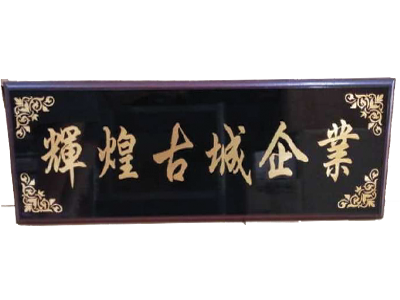 輝煌古城企業